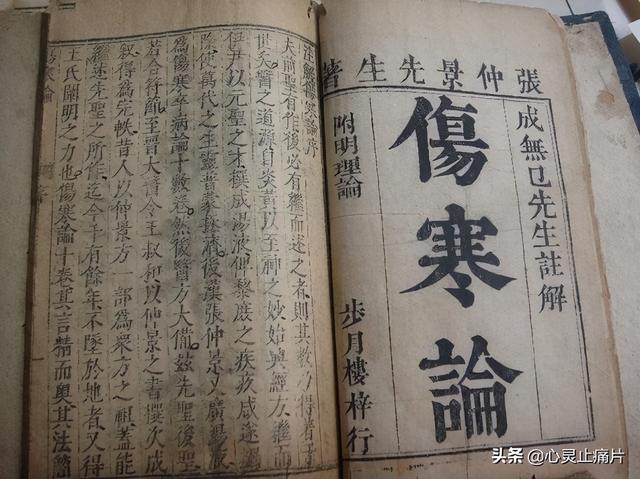 張仲景先生著
成無已先生註解
傷寒論
附明理論
步月樓梓行
注解傷寒論序
夫前聖有作後必有繼而述之者則其教乃得著于
世矣醫之道源自炎黃以至神之妙始興經方繼而
伊尹以元聖之才撰成湯液俾黎庶之疾疢咸遂蠲
除使萬代之生靈普蒙拯濟後漢張仲景又廣湯液
為傷寒卒病論十數卷然後醫方大備茲先聖後聖
若合符節至晉大醫令王叔和以仲景之書撰次成
敘得為完帙昔人以仲景方一部為衆方之祖蓋能
繼述先聖之所作迄今千有餘年不墜於地者又得
王氏闡明之力也傷寒論十卷其言精而奧其法簡
傷寒論
頭条 @心灵止痛片